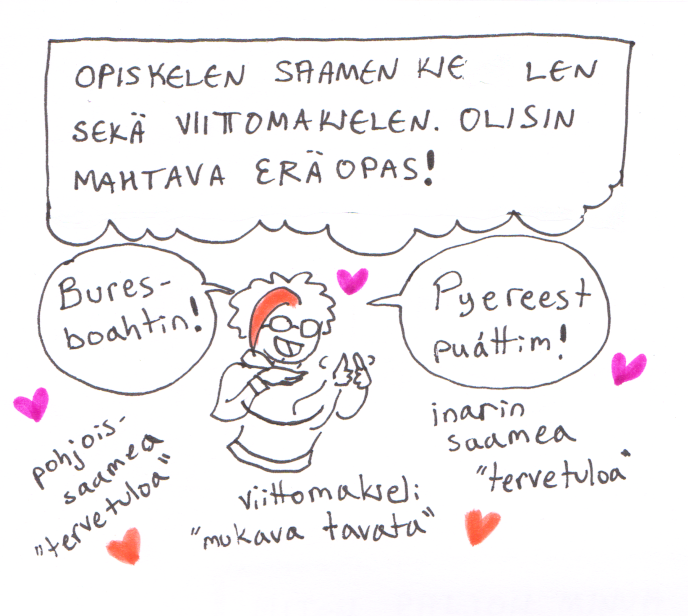 OPISKELEN SAAMEN KIE LEN
SEKÄ VIITTOMAKIELEN. OLISIN
MAHTAVA ERÄOPAS!
Bures-
boahtin!
Pyereest
puáttim!
pohjois-
saamea
"tervetuloa"
viittomakieli
"mukava tavata"
inarin
saamea
"tervetuloa"